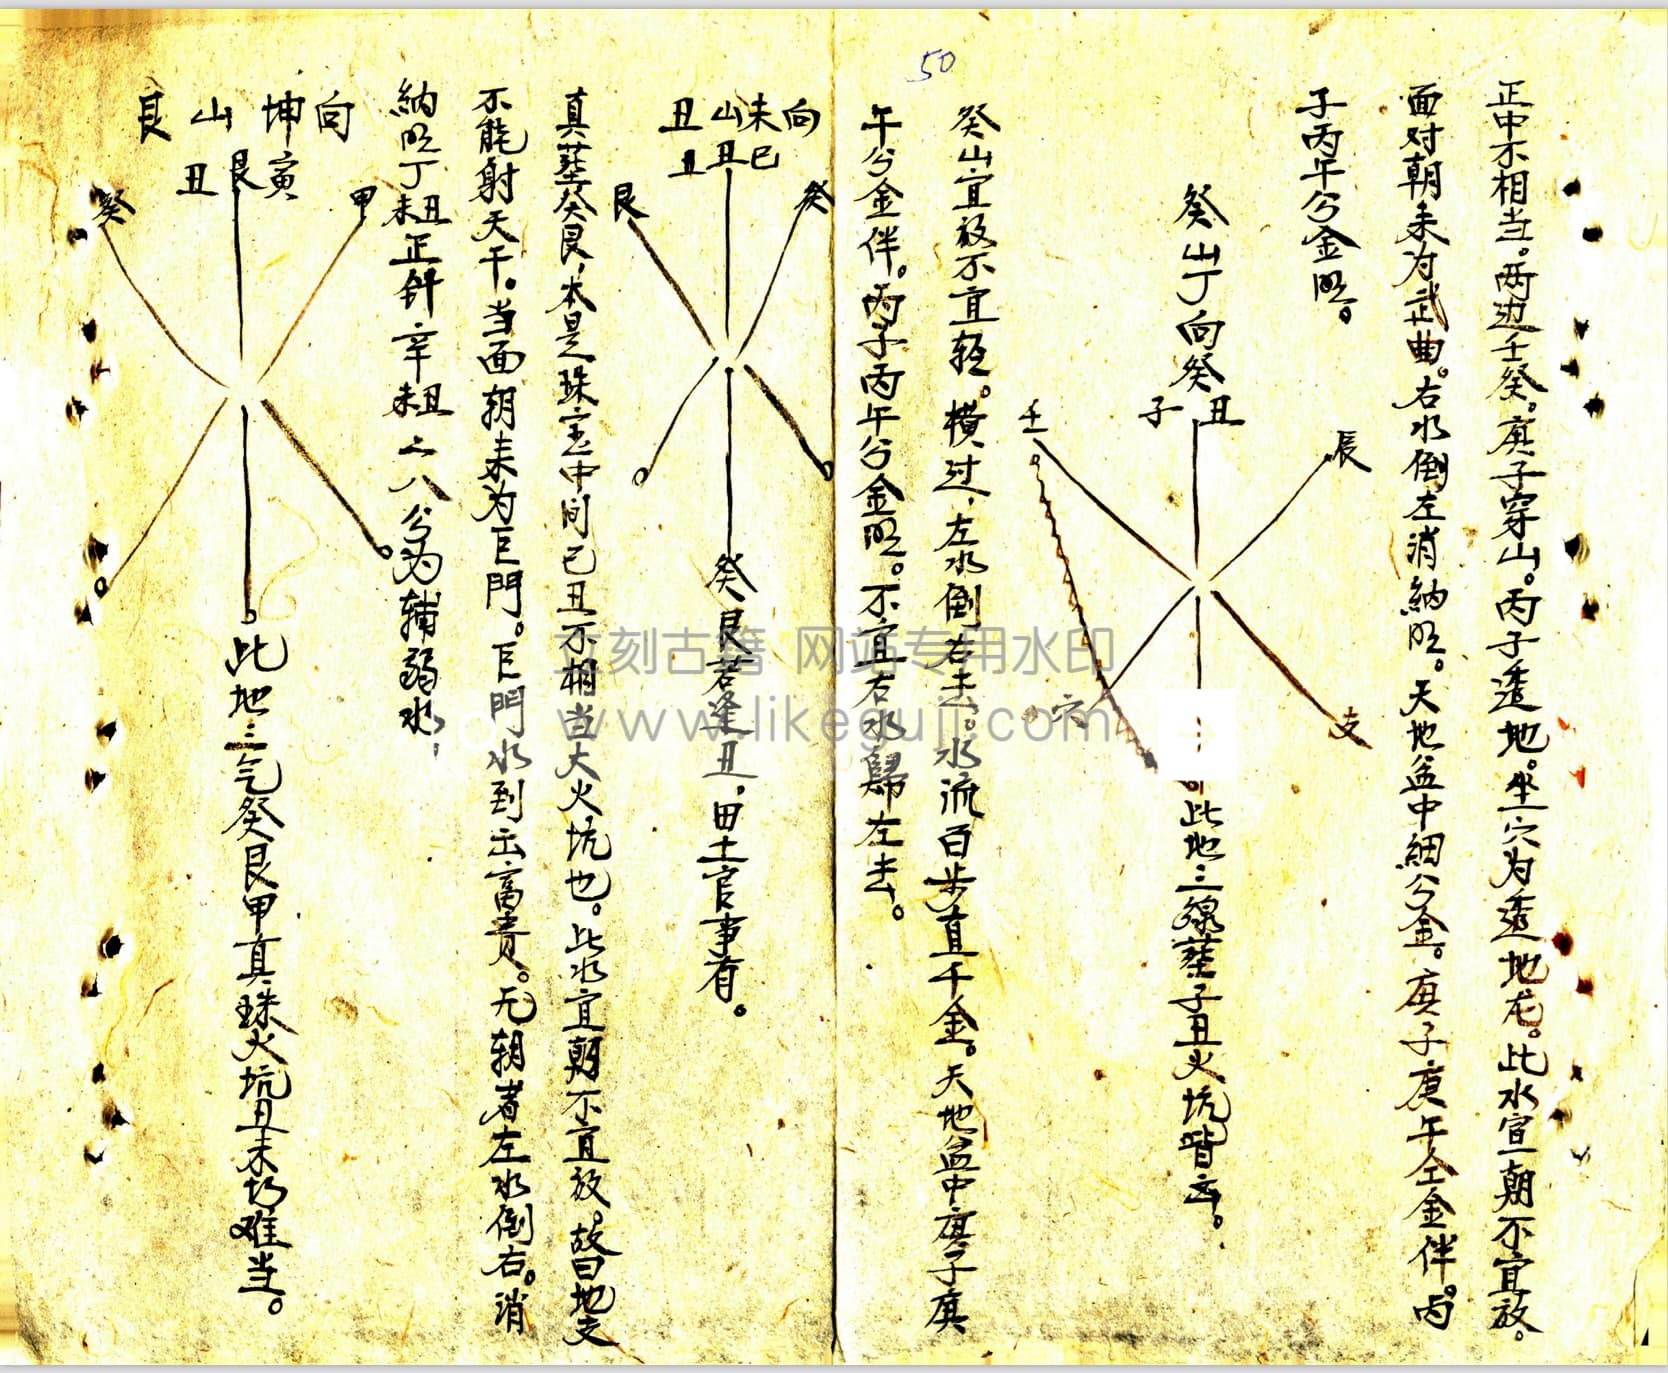 50
正中不相当。两边壬癸。庚子穿山。丙子透地。坐穴为透地龙。此水宜朝不宜放。
面对朝来为武曲。右水倒左消納。天地盆中細分金。庚子庚午全金伴。丙
子丙午分金。
癸山丁向癸
子 丑
壬
辰
穴
支
此地三線塟子丑火坑皆
癸山宜放不宜。横过，左水倒右去。水流百步直千金。天地盆中庚子庚
午分金伴。丙子丙午分金。不宜右水歸左去。
丑山未向
丑丑巳
艮
癸
癸艮若逢丑，田土官事有。
真塟癸艮，本是珠宝中间己丑不相当大火坑也。此水宜朝不宜放。故曰地支
不能射天干。当面朝来为巨門。巨門水到出富貴。无朝者左水倒右。消
納丁未丑正針辛未丑八分为辅弼水，
艮山坤向
丑艮寅
癸
甲
此地三气癸艮甲真珠火坑丑未巧难当。
立刻古籍 网站专用水印
www.likeguji.com